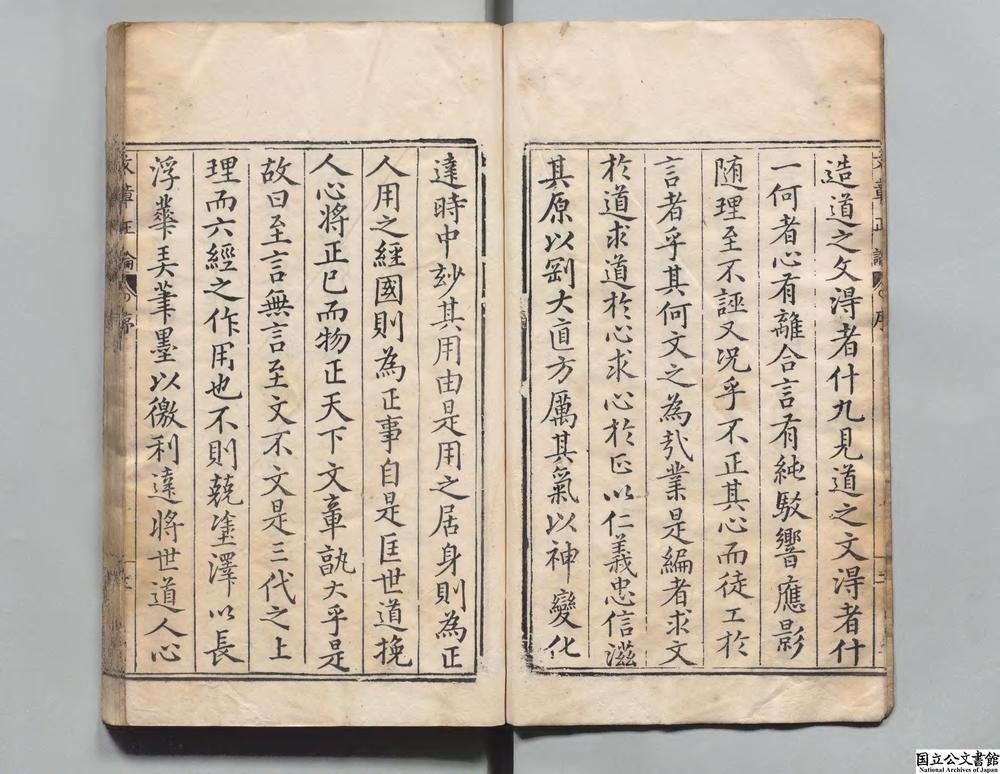 造道之文得者什九見道之文得者什
一何者心有離合言有純駁響應影
随理至不誣又况乎不正其心而徒工於
言者乎其何文之為㢤業是編者求文
於道求道於心求心於正以仁義忠信滋
其原以剛大直方厲其氣以神變化
達時中玅其用由是用之居身則為正
人用之經國則為正事自是匡世道挽
人心將正已而物正天下文章孰大乎是
故曰至言無言至文不文是三代之上
理而六經之作用也不則兢塗澤以長
浮華美筆墨以徼利達將世道人心
文章正論
序
国立公文書館
National Archives of Japan